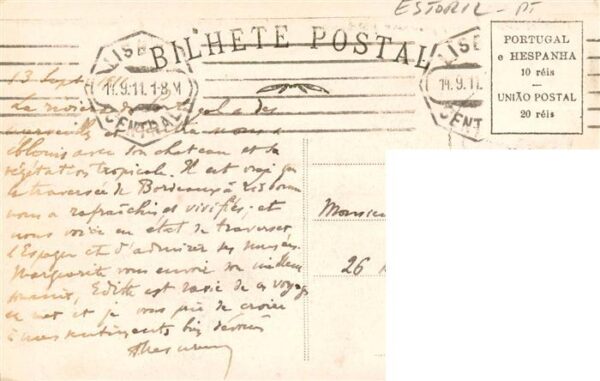 ESTORIL - PT
BILHETE POSTAL
LISBOA
14.9.11. 1-8 M
CENTRAL
LISB
14.9.11.
CENT
PORTUGAL
e HESPANHA
10 réis
—
UNIÃO POSTAL
20 réis
13 Sept
La
merveille
eblouis avec son chateau et sa
végétation tropicale. Il est vrai que
la traversée de Bordeaux à Lisbonne
nous a rafraîchis et vivifiés, et
nous voici en état de traverser
l'Espagne et d'admirer ses musées.
Marguerite vous envoie son meilleur
souvenir, Edith est ravie de ce voyage
en mer et je vous prie de croire
à mes sentiments bien dévoués
Monsieu
26